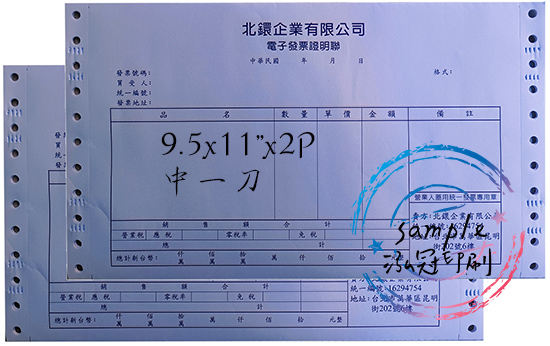 北鐶企業有限公司
電子發票證明聯
中華民國 年 月 日
發票號碼: 格式:
買受人:
統一編號:
發票地址:
品 名 數量 單價 金額 備 註
9.5x11"x2P
中一刀
營業人蓋用統一發票專用章
賣方:北鐶企業有限公
統一編號:16294754
地址:台北市萬華區昆明
街202號6樓
sample
泓冠印刷
銷 售 額 合 計
營業稅 應稅 零稅率 免稅
總 計
總計新台幣: 仟萬 佰萬 拾萬 萬 仟 佰 拾
發票
買
統一
發票
銷 售 額 合 計
營業稅 應稅 零稅率 免稅
總 計
總計新台幣: 仟萬 佰萬 拾萬 萬 仟 佰 拾 元整
賣方:北鐶企業有限公
統一編號:16294754
地址:台北市萬華區昆明
街202號6樓